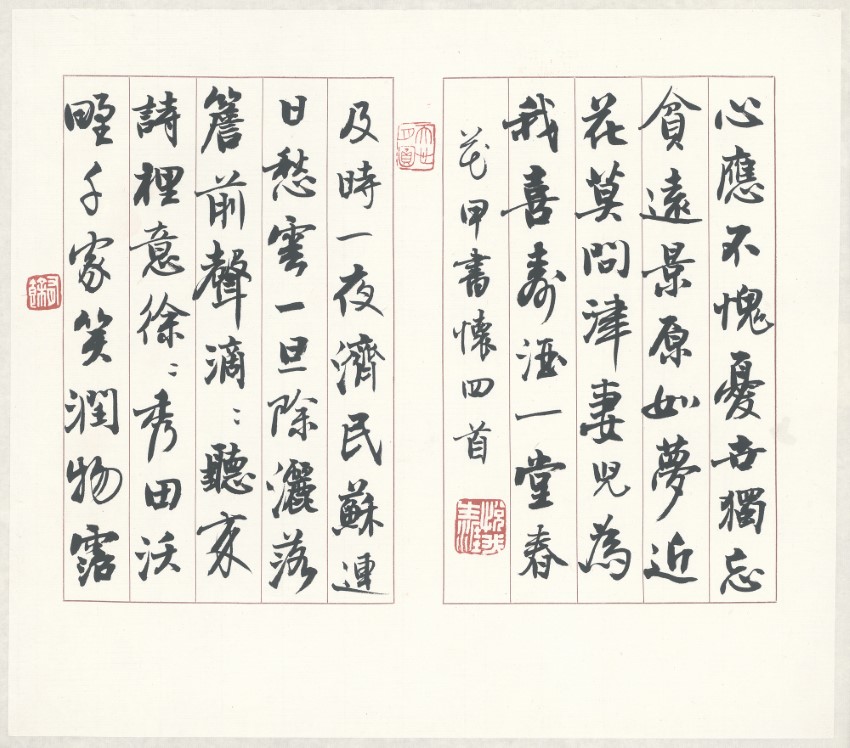 心應不愧憂世獨忘
貧遠景原如夢近
花莫問津妻兒為
我喜壽酒一堂春
花甲書懷四首
及時一夜濟民蘇連
日愁雲一旦除灑落
簷前聲滴〻聽來
詩裡意徐〻秀田沃
野千家笑潤物露